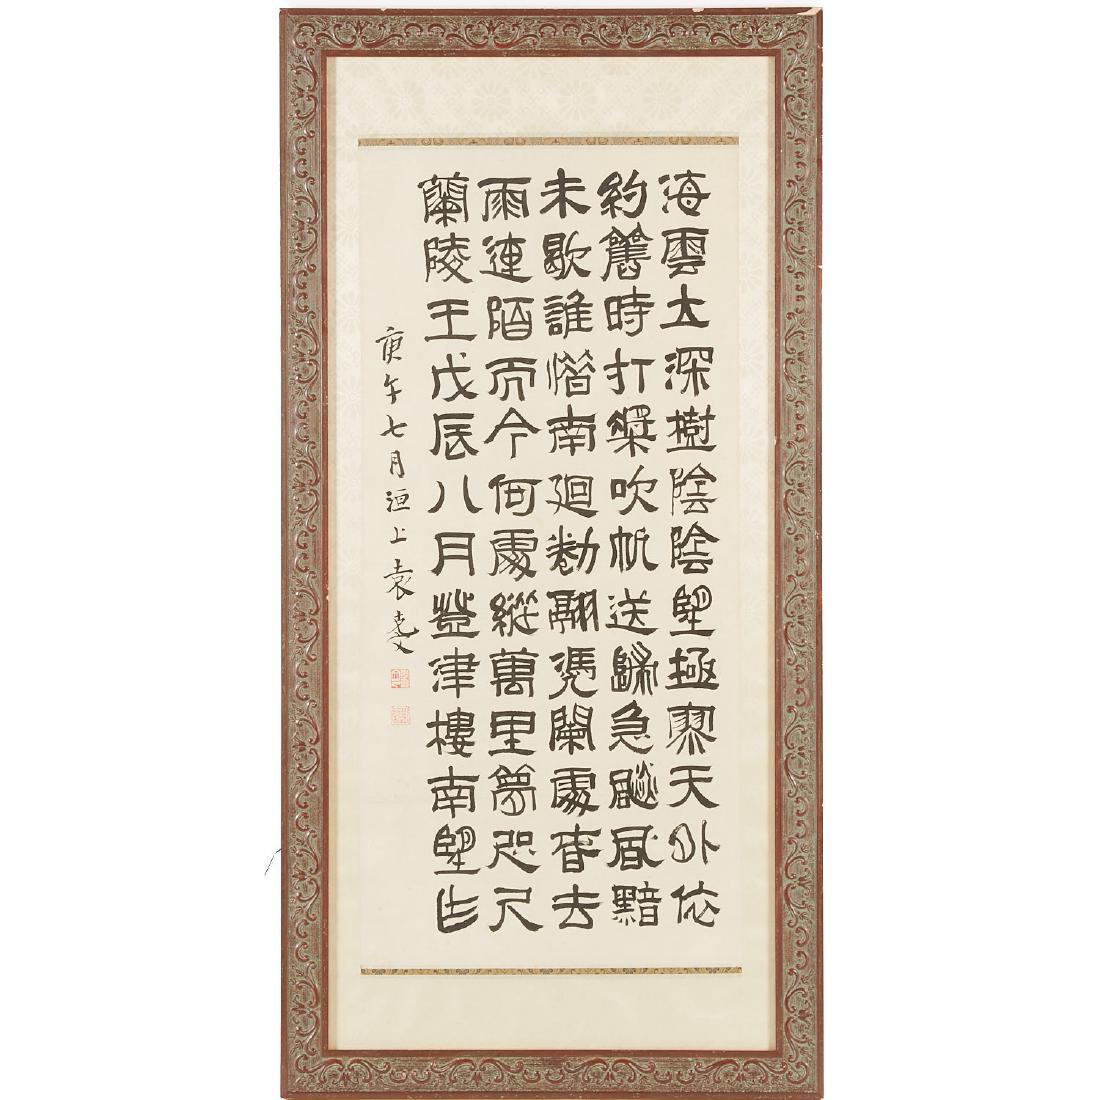 海雲大深樹陰陰望極寥天外依
約舊時打槳吹帆送歸急飈黯
未歇誰憯南迴勌翮凴闌處春去
雨連陌而今何處縱萬里夢咫尺
蘭陵王戊辰八月登津樓南望作
庚午七月洹上袁克文